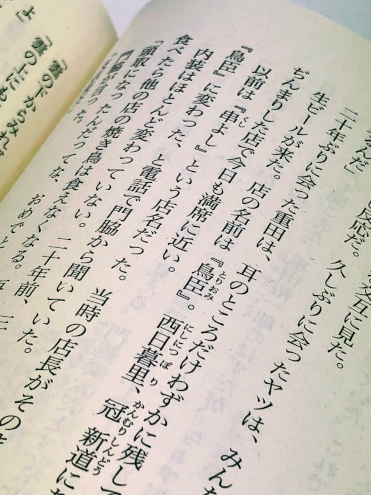 交互に見た。
反応だ。久しぶりに会ったヤツは、みんな
二十年ぶりに会った重田は、耳のところだけわずかに残して
生ビールが来た。店の名前は『鳥臣』。西日暮里、冠新道に
ぢんまりした店で今日も満席に近い。
以前は『串よし』という店名だった。当時の店長がその
『鳥臣』に変わった、と電話で門脇から聞いていた。
内装はほとんど変わっていない。二十年前
食べたら他の店の焼き鳥は食えなくなる。
「頭取になったんだってな、おめでと
「雲の下からみれ
「雲の上にも
よ」